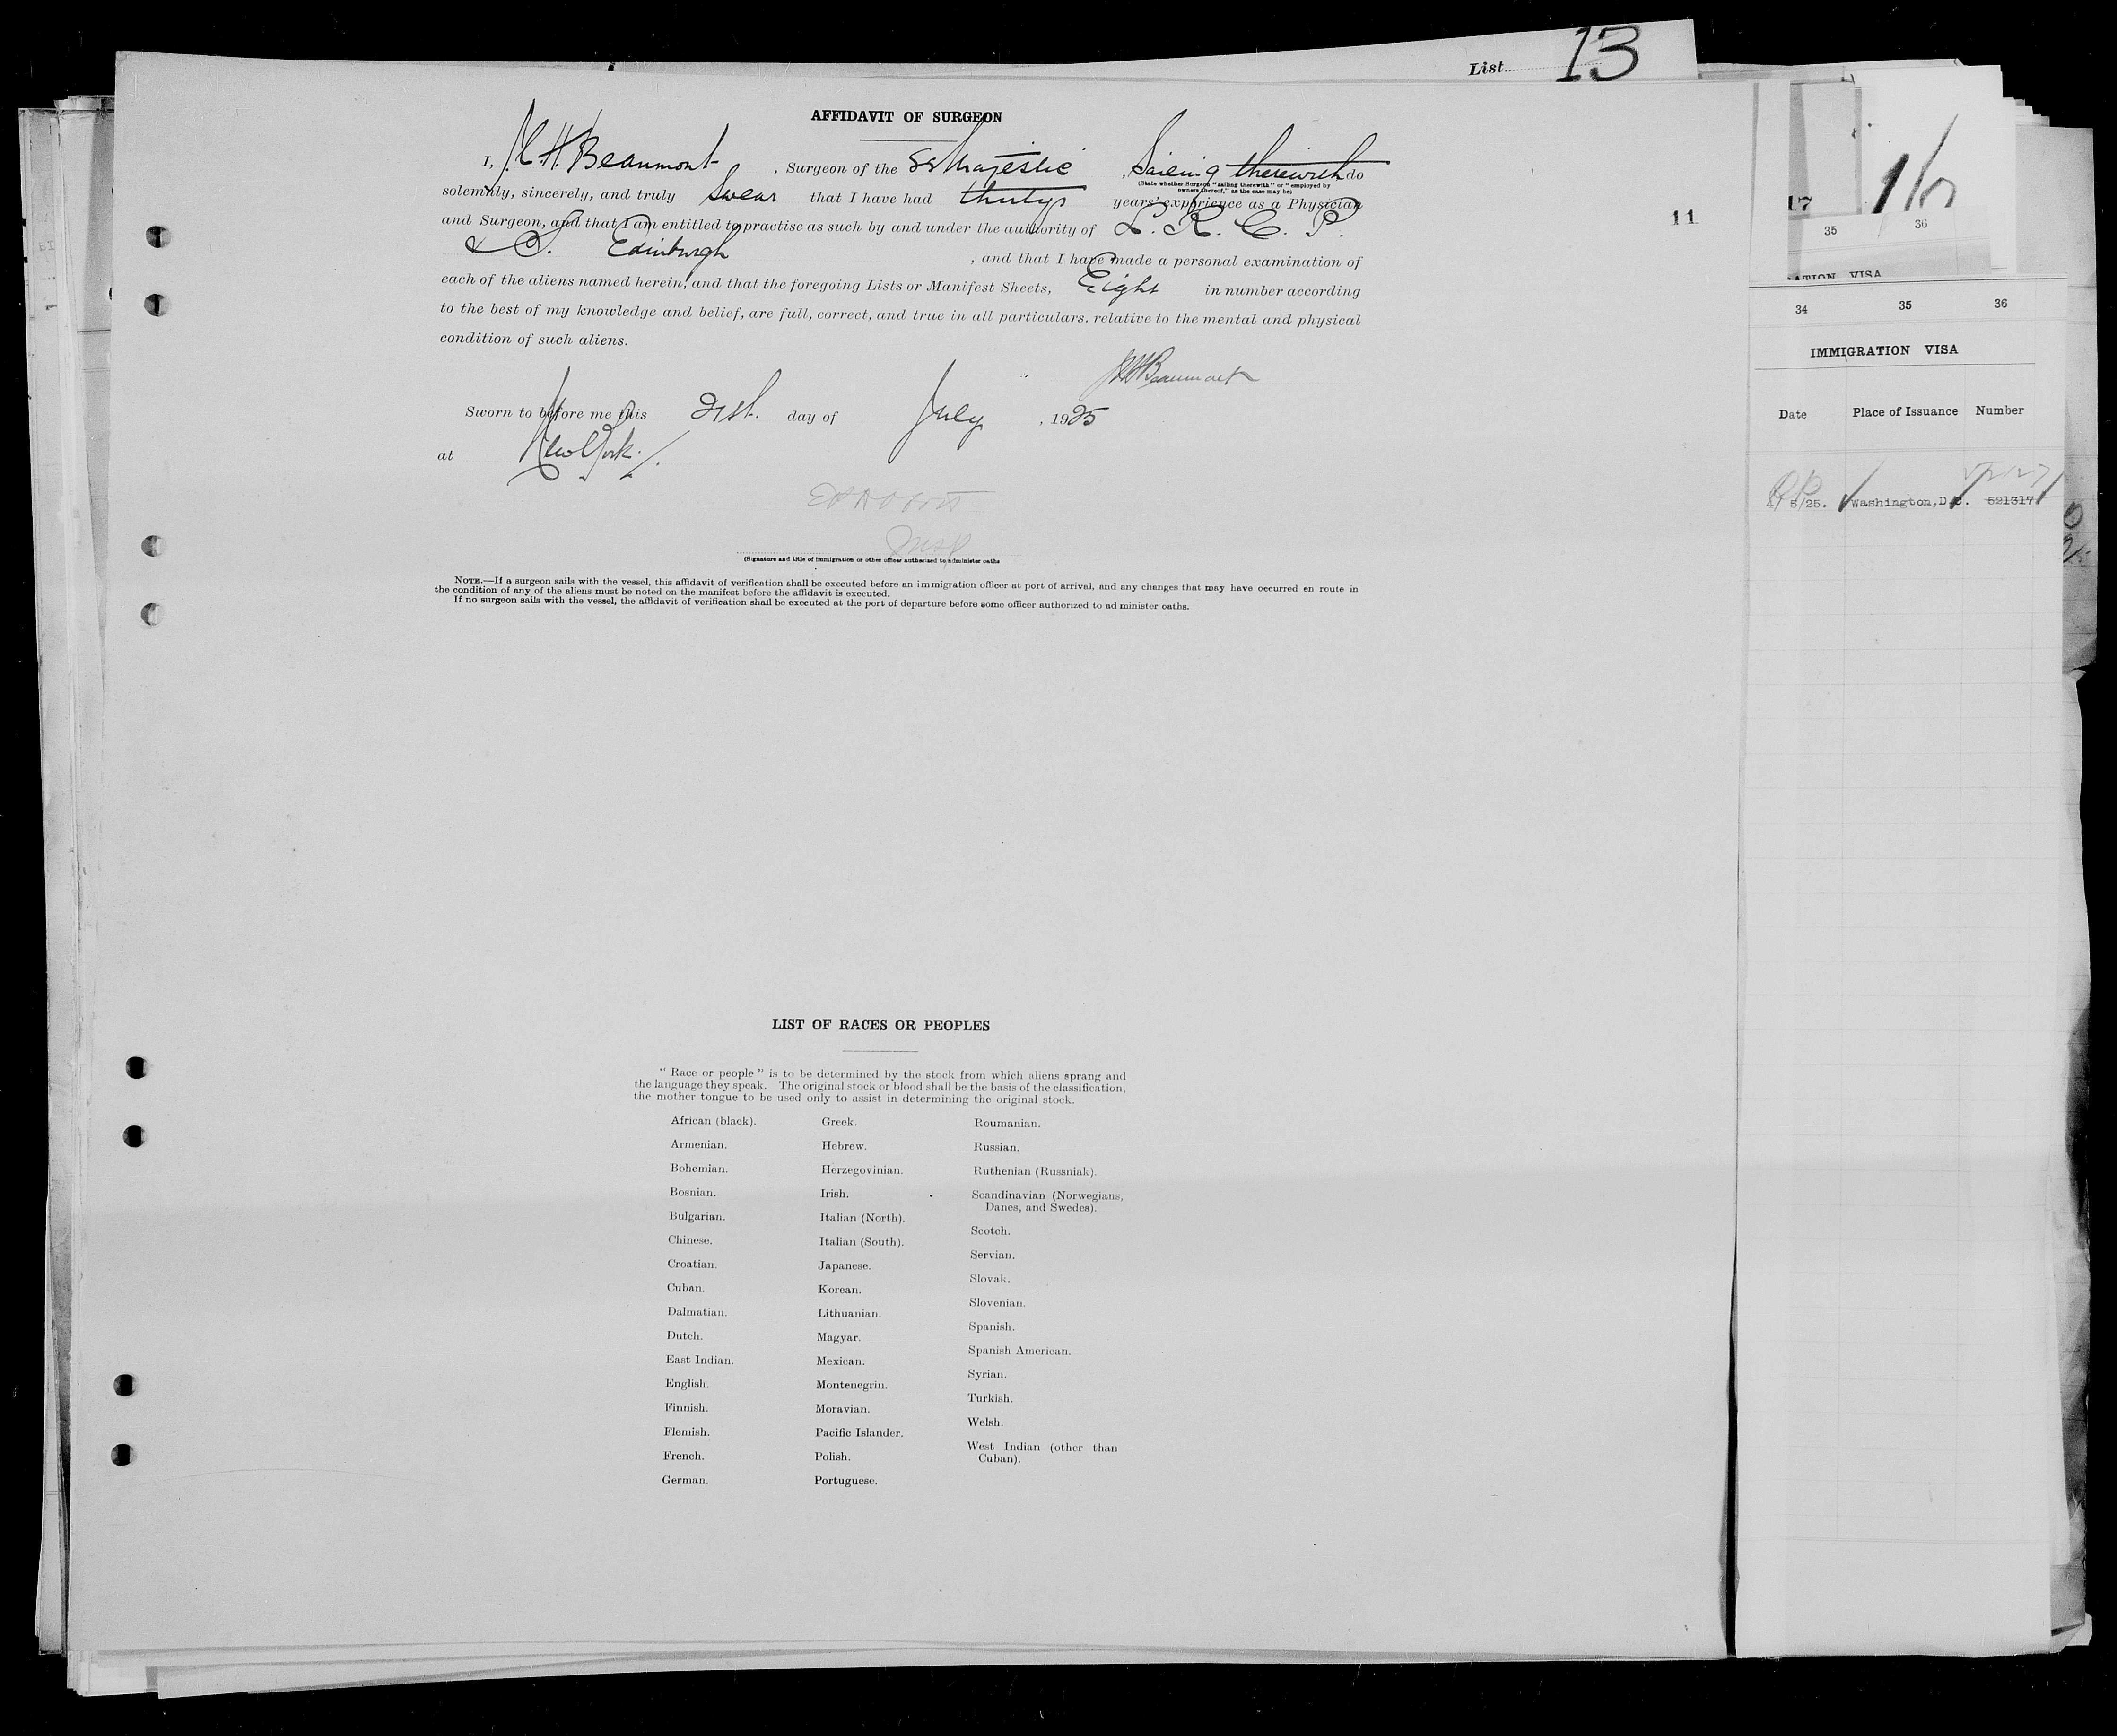 List 13
AFFIDAVIT OF SURGEON
I, J. C. H. Beaumont, Surgeon of the SS Majestic, Sailing therewith do
(State whether Surgeon "sailing therewith" or "employed by
owners thereof," as the case may be)
solemnly, sincerely, and truly Swear that I have had thirty years' experience as a Physician
and Surgeon, and that I am entitled to practise as such by and under the authority of L. R. C. P.
& S. Edinburgh, and that I have made a personal examination of
each of the aliens named herein, and that the foregoing Lists or Manifest Sheets, Eight in number according
to the best of my knowledge and belief, are full, correct, and true in all particulars, relative to the mental and physical
condition of such aliens.
Beaumont
Sworn to before me this 21st. day of July, 1925
at New York.
Insp
(Signature and title of immigration or other officer authorized to administer oaths
NOTE.—If a surgeon sails with the vessel, this affidavit of verification shall be executed before an immigration officer at port of arrival, and any changes that may have occurred en route in
the condition of any of the aliens must be noted on the manifest before the affidavit is executed.
If no surgeon sails with the vessel, the affidavit of verification shall be executed at the port of departure before some officer authorized to ad minister oaths.
11
LIST OF RACES OR PEOPLES
"Race or people" is to be determined by the stock from which aliens sprang and
the language they speak. The original stock or blood shall be the basis of the classification,
the mother tongue to be used only to assist in determining the original stock.
African (black).
Armenian.
Bohemian.
Bosnian.
Bulgarian.
Chinese.
Croatian.
Cuban.
Dalmatian.
Dutch.
East Indian.
English.
Finnish.
Flemish.
French.
German.
Greek.
Hebrew.
Herzegovinian.
Irish.
Italian (North).
Italian (South).
Japanese.
Korean.
Lithuanian.
Magyar.
Mexican.
Montenegrin.
Moravian.
Pacific Islander.
Polish.
Portuguese.
Roumanian.
Russian.
Ruthenian (Russniak).
Scandinavian (Norwegians,
Danes, and Swedes).
Scotch.
Servian.
Slovak.
Slovenian.
Spanish.
Spanish American.
Syrian.
Turkish.
Welsh.
West Indian (other than
Cuban).
17
35 36
ATION VISA
34 35 36
IMMIGRATION VISA
Date Place of Issuance Number
8/25. Washington, D.C. 521317